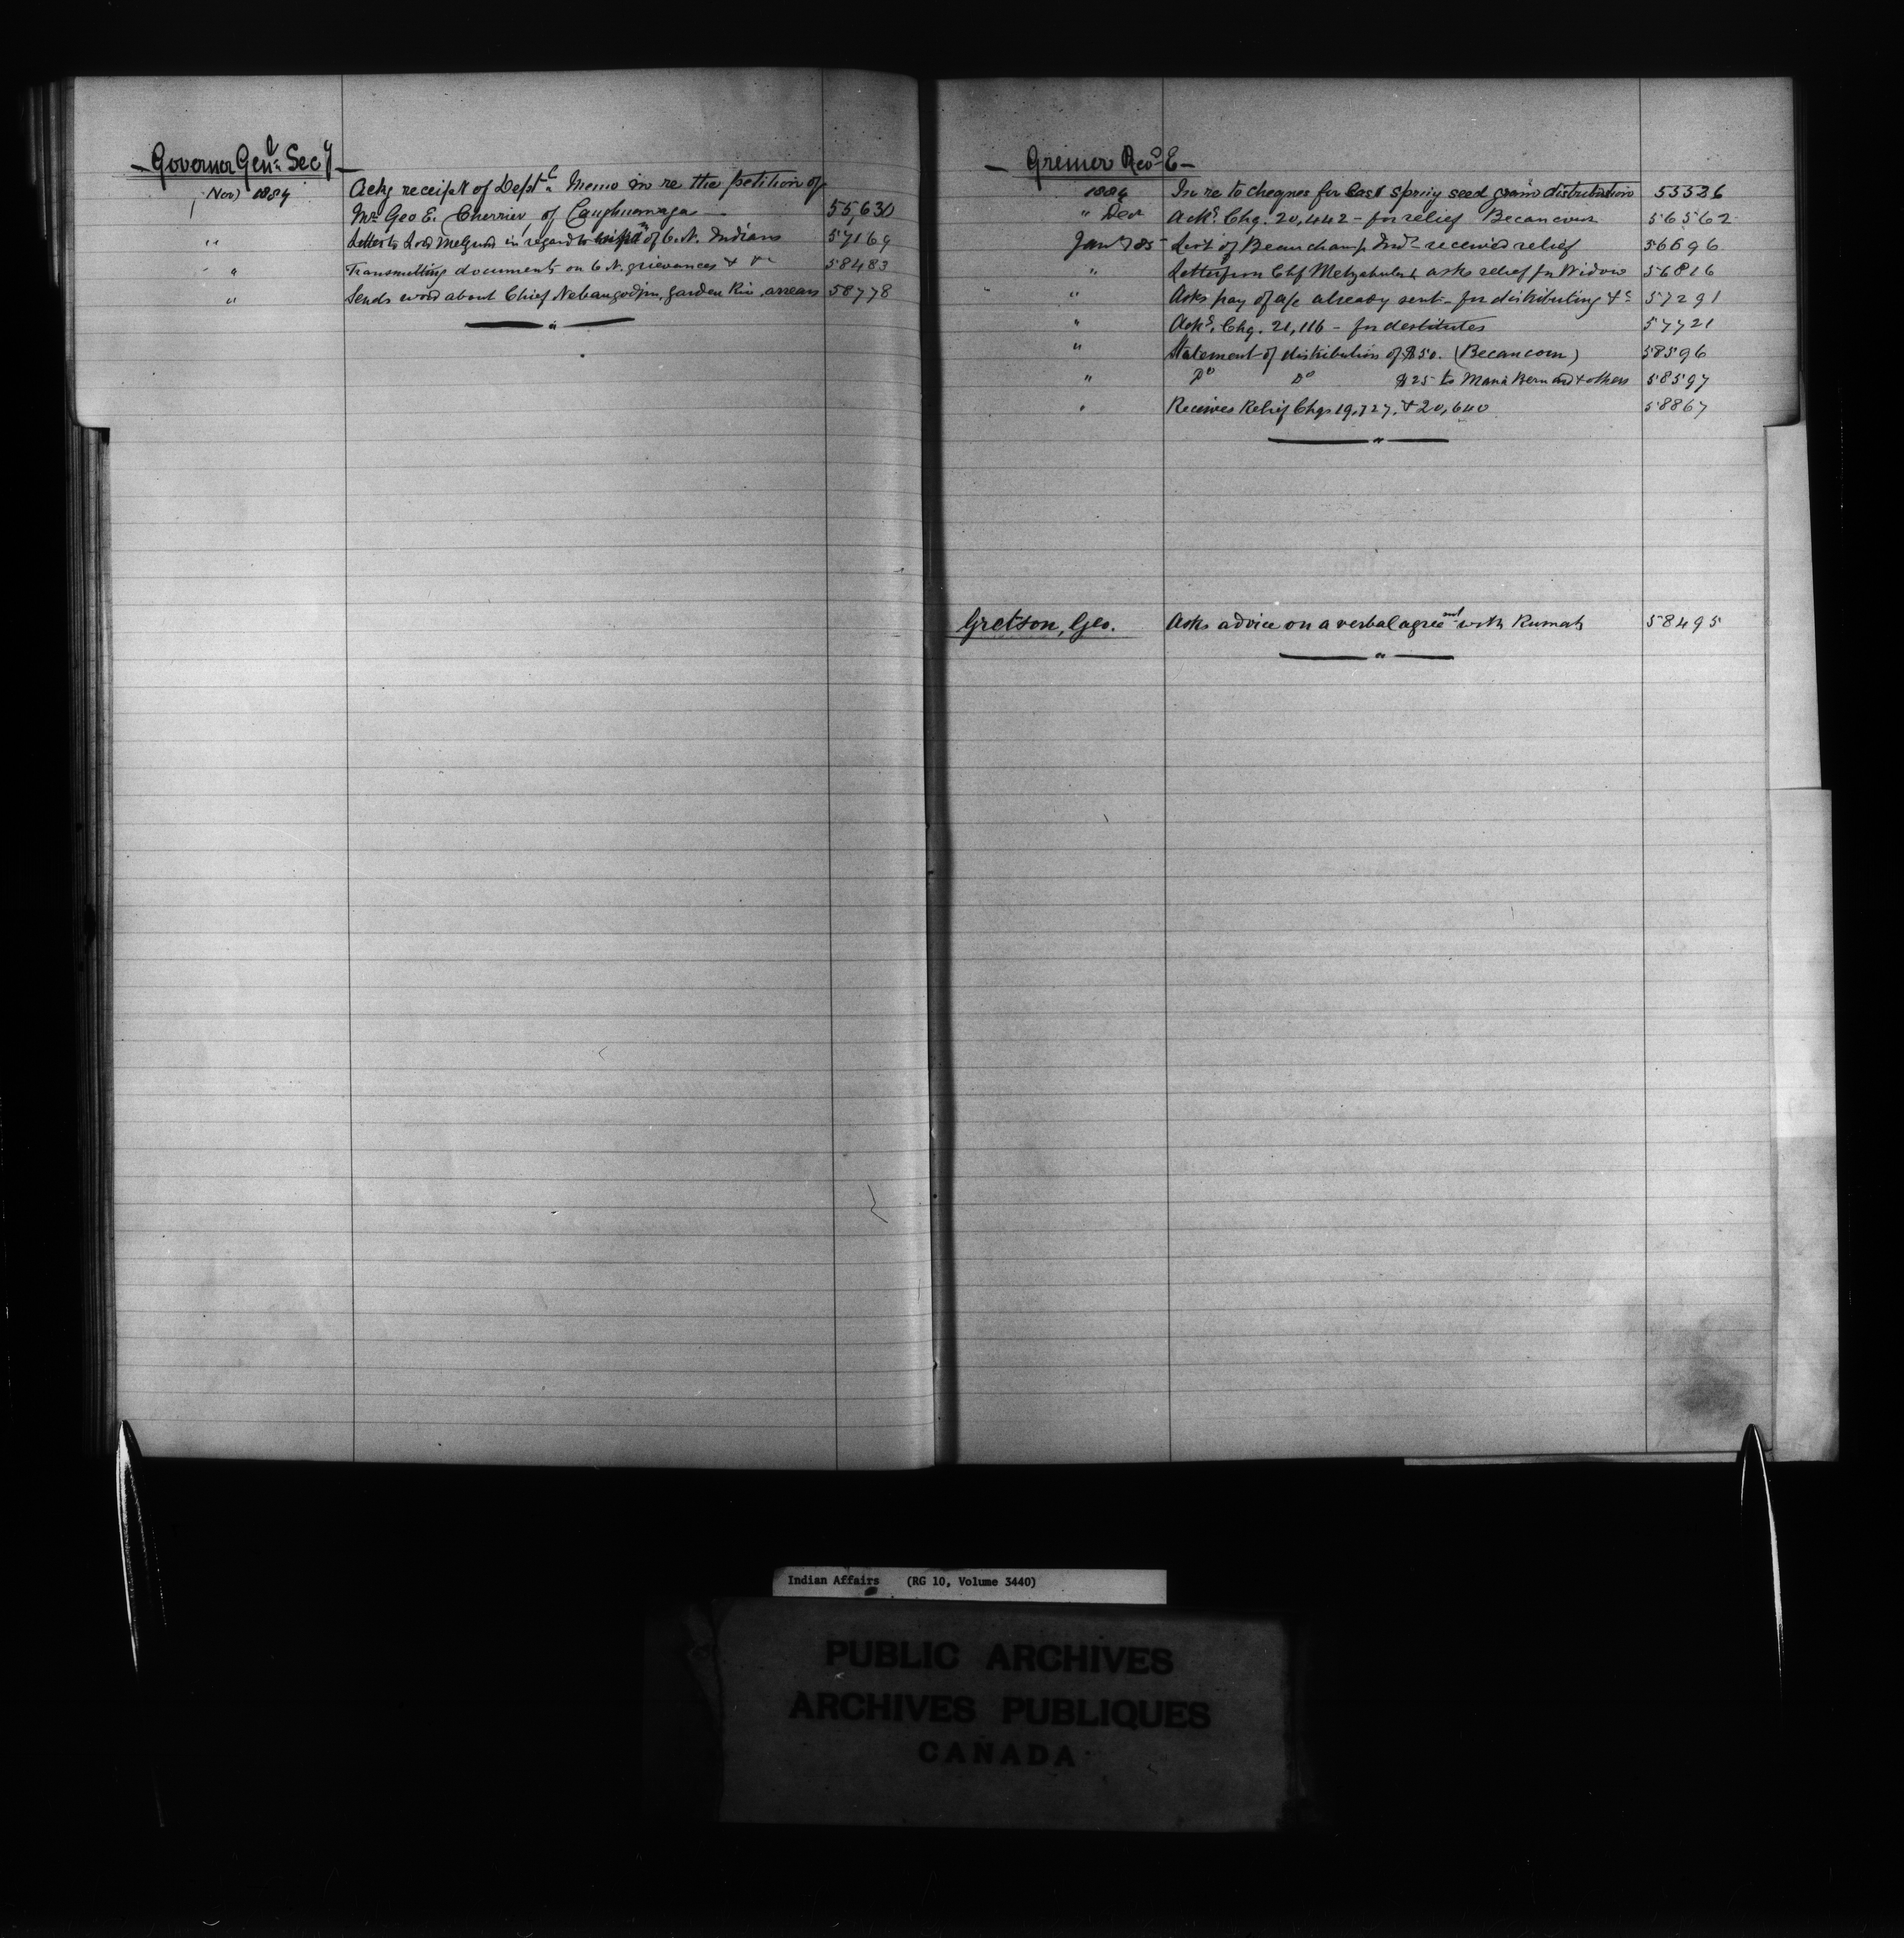 — Governor Genl. Secy —
Nov 1884 Ackg receipt of Deptl. Memo in re the petition of
Mr Geo E. Cherrier, of Caughnawaga — 55,630
" Letter to Lord Melgund in regard to of 6. N. Indians 57169
" Transmitting documents on 6 N. grievances & &c 58483
" Sends word about Chief Nebaugodjin, Garden Riv, arrears 58778
— Grenier Revd E —
1884 In re to cheques for last Spring seed grain distribution 55526
" Dec Acks. Chq. 20,442 – for relief Becancour 56562
Jany 85 List of Beauchamp Inds received relief 56696
" Letter from Chf asks relief for Widow 56816
" Asks pay of a/c already sent – for distributing &c 57291
" Acks. Chq. 21,116 – for destitutes 57721
" Statement of distribution of $50. (Becancour) 58596
" Do Do $25 to Maria Bernard & others 58597
" Receives Relief Chqs 19,727, & 20,640 58867
Gretson, Geo. Asks advice on a verbal agreemt with 58495
Indian Affairs (RG 10, Volume 3440)
PUBLIC ARCHIVES
ARCHIVES PUBLIQUES
CANADA